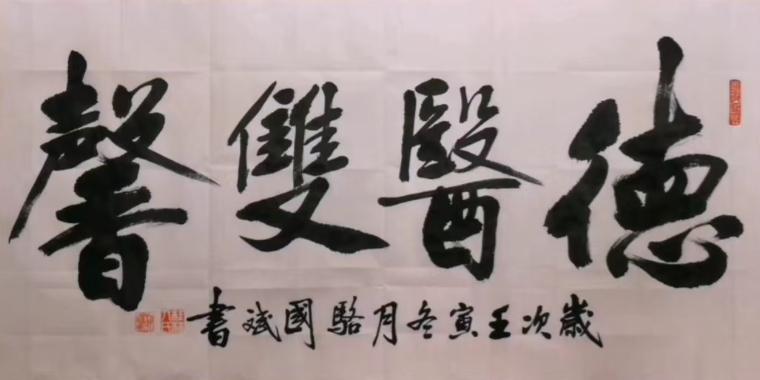 德醫雙馨
歲次壬寅冬月駱國斌書